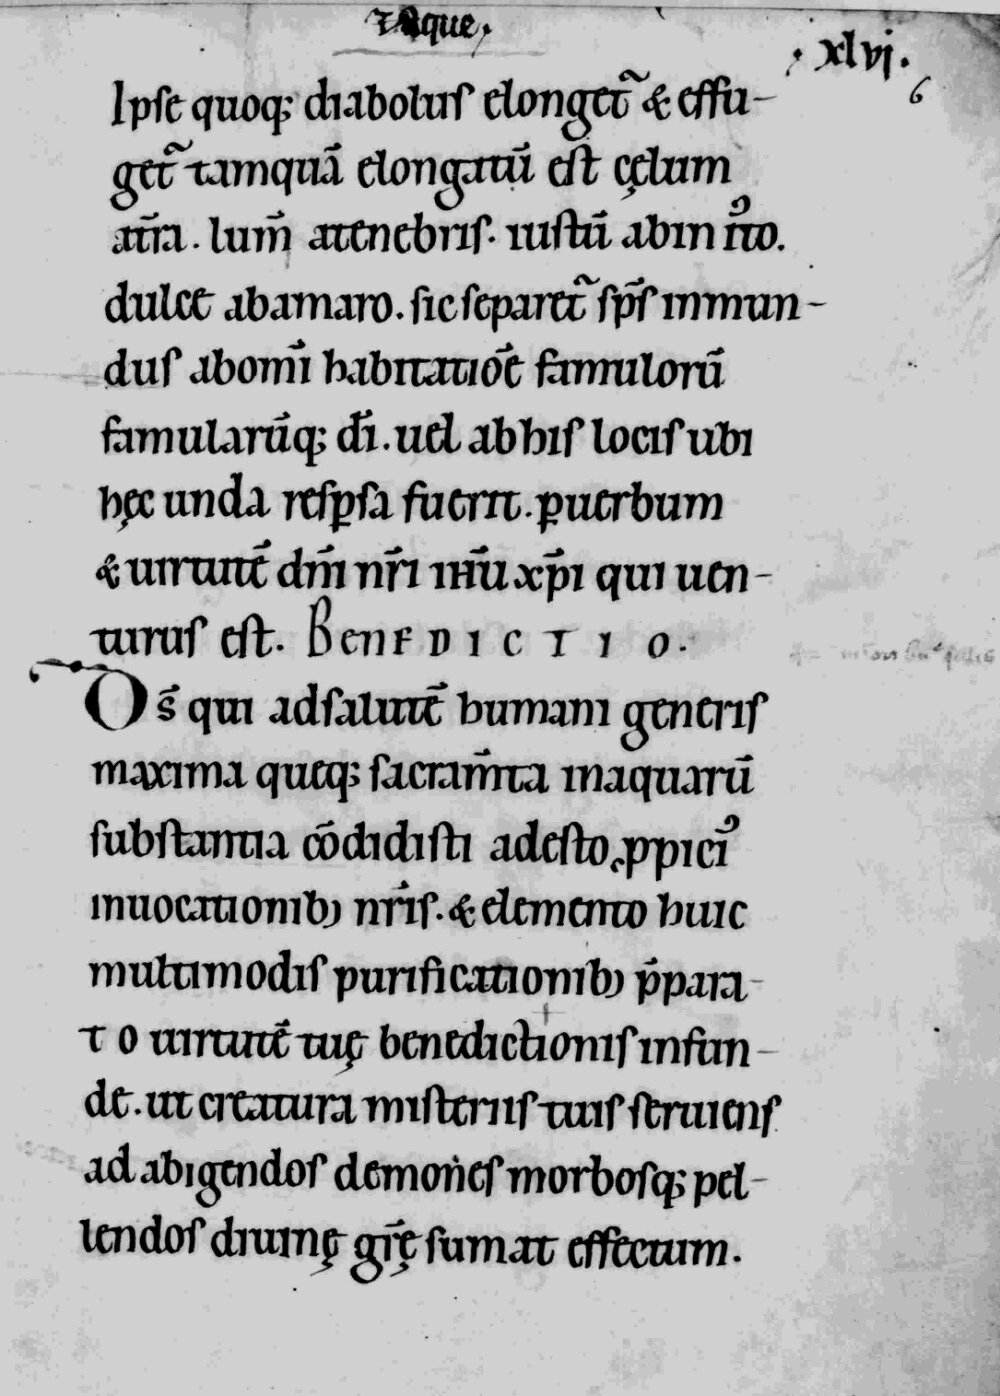 Aque,
· xlvj.
6
Ipse quoq; diabolus elonget᷑ & effu-
get᷑ tamquā elongatū est cęlum
at̄ra . lum̄ atenebris · iustū abiniꝰto.
dulce abamaro . sic separet᷑ sp̄s inmun-
dus abom̄i habitatiōe famulorū
famularūq; dī . uel ab his locis ubi
hęc unda respꝑsa fuerit . ꝑuerbum
& uirtutē dn̄i nr̄i ihū xp̄i qui uen-
turus est . BENEDICTIO ·
Os̄ qui adsalutē humani generis
maxima queq; sacram̄ta inaquarū
substantia cōdidisti adesto ꝓpiciꝰ
inuocationib; nr̄is · & elemento huic
multimodis purificationib; p̄para-
to uirtutē tuę benedictionis infun-
de . ut creatura misteriis tuis seruiens
ad abigendos demones morbosq; pel-
lendos diuinę gr̄ę sumat effectum .